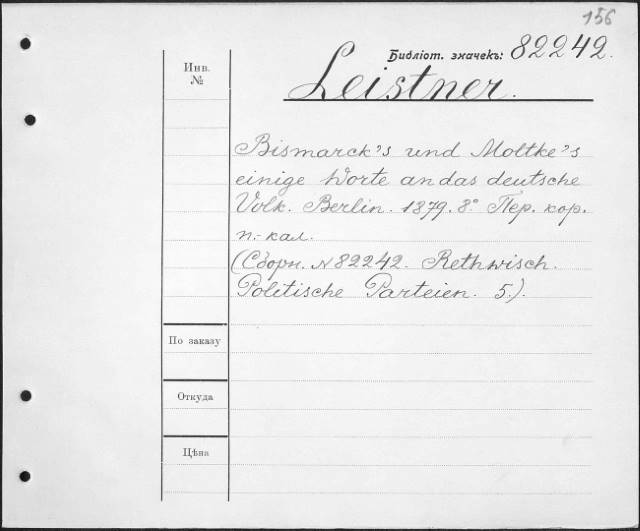 156
Библіот. значекъ: 82242.
Инв.
№
Leistner.
Bismarck's und Moltke's
einige Worte an das deutsche
Volk. Berlin. 1879. 8° Пер. кор.
п.-кал.
(Сборн. N 82242. Rethwisch.
Politische Parteien. 5.).
По заказу
Откуда
Цѣна